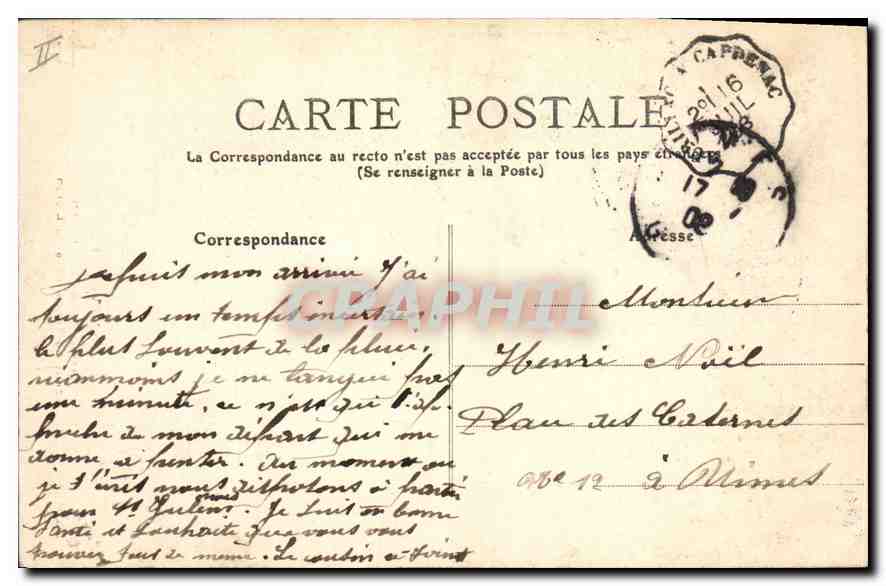 II
CARTE POSTALE
La Correspondance au recto n'est pas acceptée par tous les pays étrangers
(Se renseigner à la Poste)
CAPDENAC
2° 16
JUIL
17
Correspondance
Adresse
depuis mon arrivée J'ai
toujours un temps incertain.
le plus souvent de la pluie,
neanmoins je ne langui pas
une minute, ce n'est qu'à l'ap-
proche de mon départ qui me
donne à penser. Au moment ou
je t'écris nous disposons à partir
pour St Je suis en bonne
santé et souhaite que vous vous
trouviez tous de meme. Le cousin
Monsieur
Henri Noël
Plan des Casernes
No 12 à Nimes
CPAPHIL